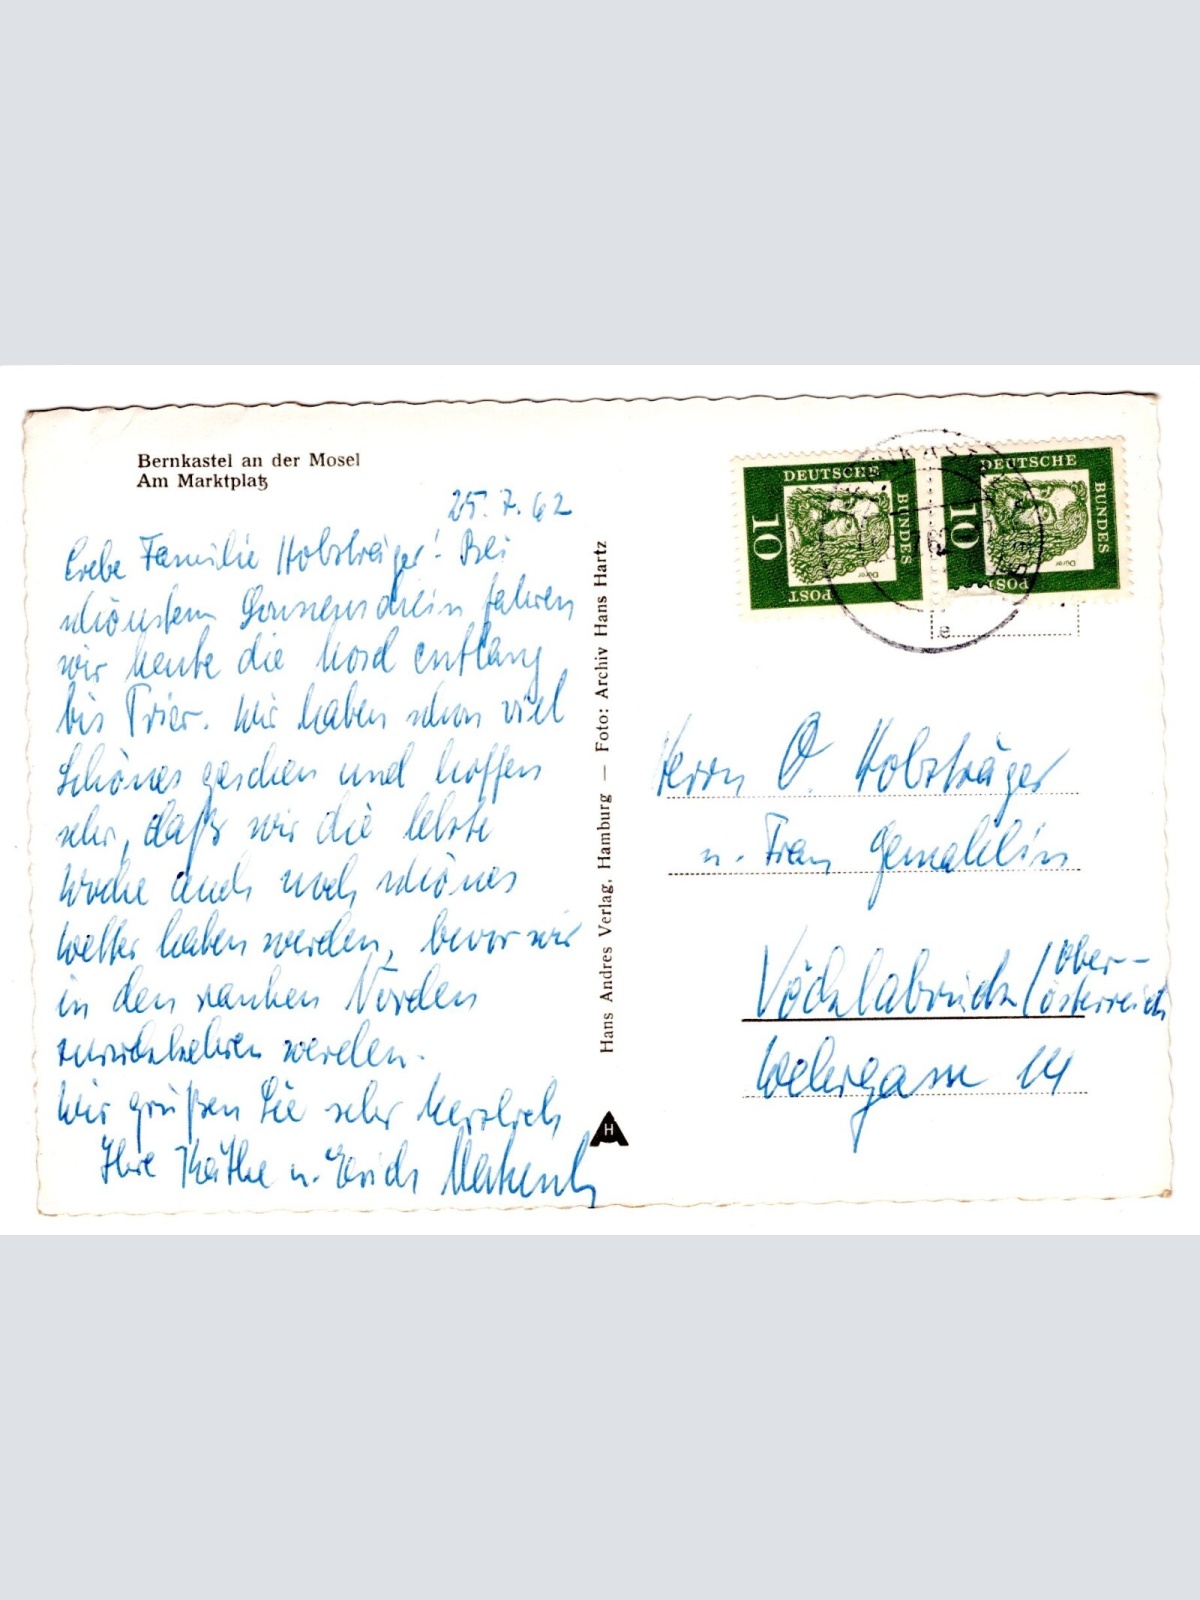 Bernkastel an der Mosel
Am Marktplatz
25. 7. 62
Liebe Familie Holzträger! Bei
schönstem Sonnenschein fahren
wir heute die Mosel entlang
bis Trier. Wir haben schon viel
Schönes gesehen und hoffen
sehr, daß wir die letzte
Woche auch noch schönes
Wetter haben werden, bevor wir
in den rauhen Norden
zurückkehren werden.
Wir grüßen Sie sehr herzlich
Ihre Käthe u. Erich
Hans Andres Verlag, Hamburg — Foto: Archiv Hans Hartz
H
DEUTSCHE
BUNDES
POST
10
Dürer
DEUTSCHE
BUNDES
POST
10
Dürer
e
Herrn O. Holzträger
u. Frau Gemahlin
Vöcklabruck / Ober-
österreich
Wehrgasse 14